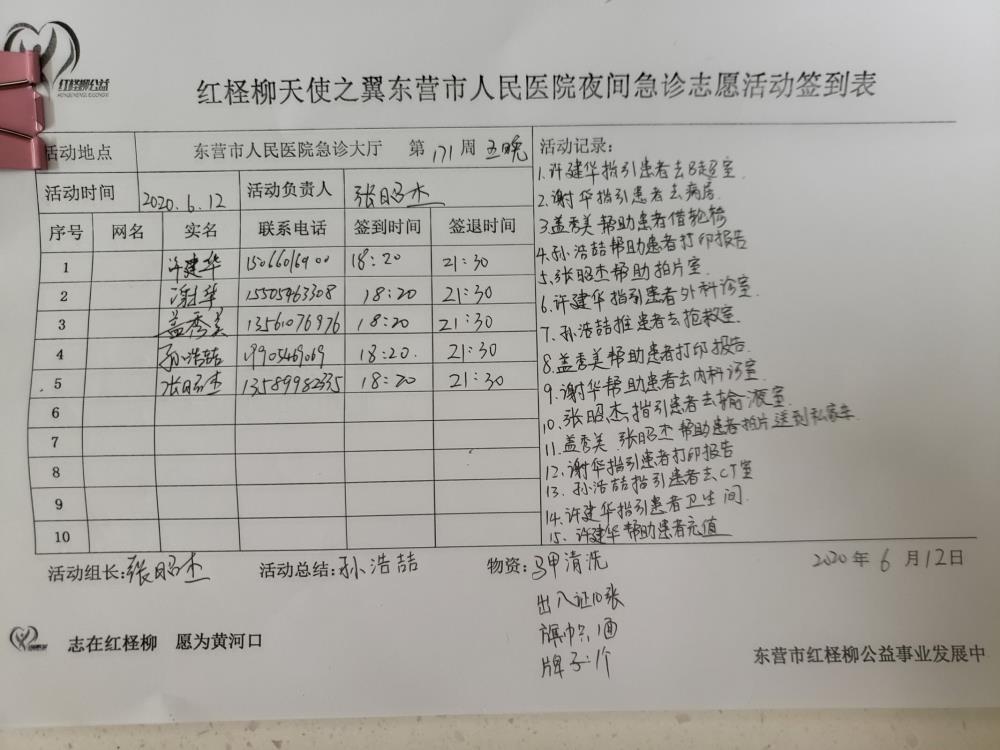 红柽柳公益
红柽柳天使之翼东营市人民医院夜间急诊志愿活动签到表
活动地点 东营市人民医院急诊大厅 第171周 五晚
活动时间 2020.6.12 活动负责人 张昭杰
序号 网名 实名 联系电话 签到时间 签退时间
1 许建华 15066016900 18:20 21:30
2 谢华 15505463308 18:20 21:30
3 盖秀美 13561076976 18:20 21:30
4 孙浩喆 19905469069 18:20. 21:30
5 张昭杰 13589982335 18:20 21:30
6
7
8
9
10
活动记录:
1.许建华指引患者去B超室.
2.谢华指引患者去病房.
3.盖秀美帮助患者借轮椅
4.孙浩喆帮助患者打印报告
5.张昭杰帮助拍片室.
6.许建华指引患者外科诊室.
7.孙浩喆推患者去抢救室.
8.盖秀美帮助患者打印报告.
9.谢华帮助患者去内科诊室.
10.张昭杰指引患者去输液室.
11.盖秀美.张昭杰帮助患者拍片送到私家车.
12.谢华指引患者打印报告
13.孙浩喆指引患者去CT室
14.许建华指引患者卫生间.
15.许建华帮助患者充值
活动组长:张昭杰 活动总结:孙浩喆 物资:马甲清洗
2020年6月12日
出入证10张
旗帜:1面
牌子:1个
志在红柽柳 愿为黄河口
东营市红柽柳公益事业发展中